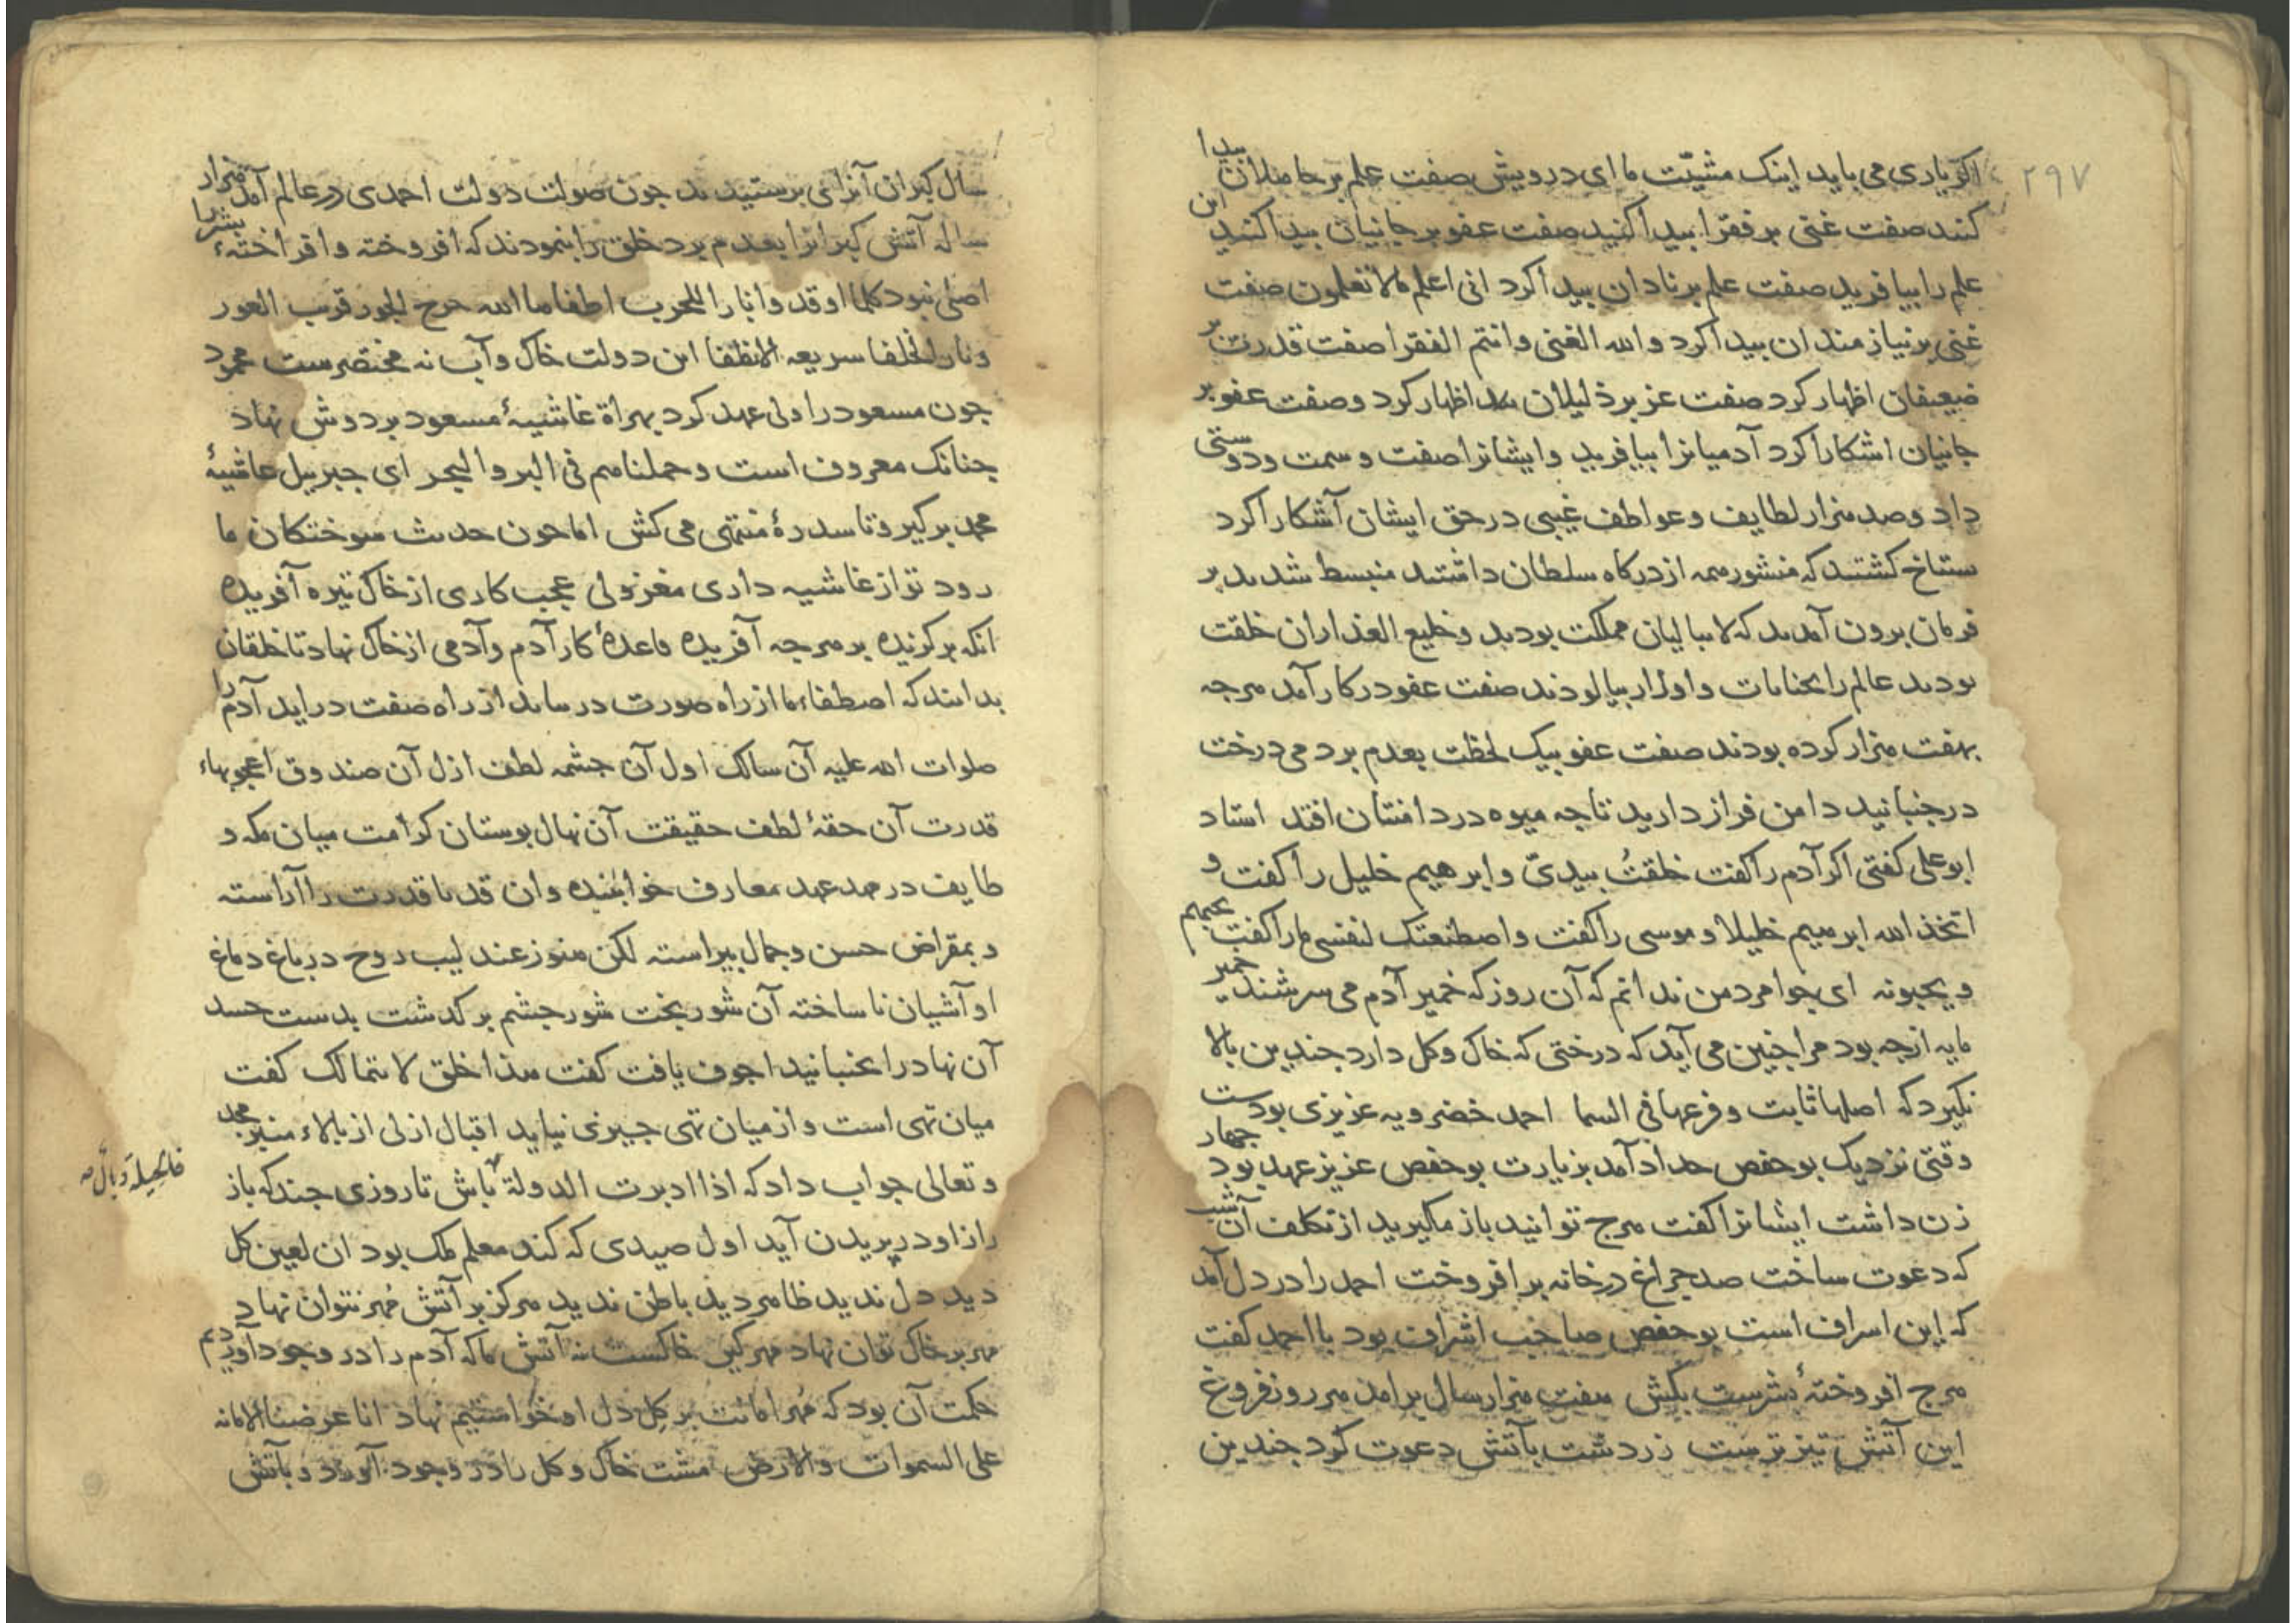 ۲۹۷
اکر یاری می باید اینک مشیّت ما ای درویش صفت علم بر جاهلان پیدا
کنند صفت غنی بر فقرا بیدا کنید صفت عفو بر جانیان بیدا کنید این
علم را بیافرید صفت علم بر نادان بیدا کرد انی اعلم مالا تعلمون صفت
غنی بر نیازمندان بیدا کرد والله الغنی وانتم الفقرا صفت قدرت بر
ضعیفان اظهار کرد صفت عز بر ذلیلان اظهار کرد وصفت عفو بر
جانیان اشکارا کرد آدمیانرا بیافرید وایشانرا صفت وسمت ودوستی
داد وصد هزار لطایف وعواطف غیبی در حق ایشان آشکارا کرد
ستاخ کشتند که منشور همه از درکاه سلطان داشتند منبسط شدند بر
فرمان برون آمدند که لاابالیان مملکت بودند وخلیع العذاران خلقت
بودند عالم را بجنایات واوزار بیالودند صفت عفو در کار آمد هرجه
بهفت هزار کرده بودند صفت عفو بیک لحظت بعدم برد می درخت
در جنبانید دامن فراز دارید تا جه میوه در دامنتان افتد استاد
ابوعلی کفتی اکر آدم را کفت خلقتُ بیدیّ وابرهیم خلیل را کفت و
اتخذ الله ابرهیم خلیلا وموسی را کفت واصطنعتک لنفسی ما را کفت یحبهم
ویحبونه ای جوامرد من ندانم که آن روز که خمیر آدم می سرشتند خمیر
مایه از جه بود مرا جنین می آید که درختی که خاک وکل دارد جندین بالا
نکیرد که اصلها ثابت وفرعها فی السما احمد خضرویه عزیزی بودست
وقتی نزدیک بوحفص حداد آمد بزیارت بوحفص عزیز عهد بود جهار
زن داشت ایشانرا کفت هرج توانید باز مکیرید از تکلف آن شب
که دعوت ساخت صد جراغ در خانه بر افروخت احمد را در دل آمد
که این اسراف است بوحفص صاحب اشراف بود با احمد کفت
هرج افروختهٔ بشرست بکش هفت هزار سال برامد هر روز فروغ
این آتش تیزترست زردشت بآتش دعوت کرد جندین
سال کبران آنرا می برستیدند جون صولت دولت احمدی در عالم آمد هزار
ساله آتش کبرانرا بعدم برد خلق را بنمودند که افروخته وافراختهٔ بشر را
اصلی نبود کلما اوقدوا نارا للحرب اطفاها الله
ونار الخلفا سریعه الانطفا این دولت خاک وآب نه مختصرست محمود
جون مسعود را ولی عهد کرد بهراة غاشیهٔ مسعود بر دوش نهاد
جنانک معروف است وحملناهم فی البر والبحر ای جبرییل غاشیهٔ
محمد برکیر وتا سدرهٔ منتهی می کش اما جون حدیث سوختکان ما
رود تو از غاشیه داری معزولی عجب کاری از خاک تیره آفریده
انکه برکزیده بر هرجه آفریده قاعدهٔ کار آدم وآدمی از خاک نهاد تا خلقان
بدانند که اصطفاء ما از راه صورت درنیاید از راه صفت دراید آدم را
صلوات الله علیه آن سالک اول آن جشمه لطف ازل آن صندوق اعجوبهاء
قدرت آن حقهٔ لطف حقیقت آن نهال بوستان کرامت میان مکه و
طایف در مهد عهد معارف خوابنیده وان قد با قدرت را آراسته
وبمقراض حسن وجمال بیراسته لکن هنوز عندلیب روح در باغ دماغ
او آشیان ناساخته آن شوربخت شورجشم برکذشت بدست حسد
آن نهاد را بجنبانید اجوف یافت کفت هذا خلق لا یتمالک کفت
میان تهی است واز میان تهی جیزی نیاید اقبال ازلی از بالاء منبر مجد
وتعالی جواب داد که اذا ادبرت الدولة باش تا روزی جند که باز
فالحیلة وبال صه
راز او در پریدن آید اول صیدی که کند معلم ملک بود ان لعین کل
دید دل ندید ظاهر دید باطن ندید هرکز بر آتش مُهر نتوان نهاد
مهر بر خاک توان نهاد مهرکیر خاکست نه آتش ما که آدم را در وجود آوردیم
حکمت آن بود که مُهر امانت بر کِل دل او خواستیم نهاد انا عرضنا الامانه
علی السموات والارض مشت خاک وکل را در وجود آورد وبآتش